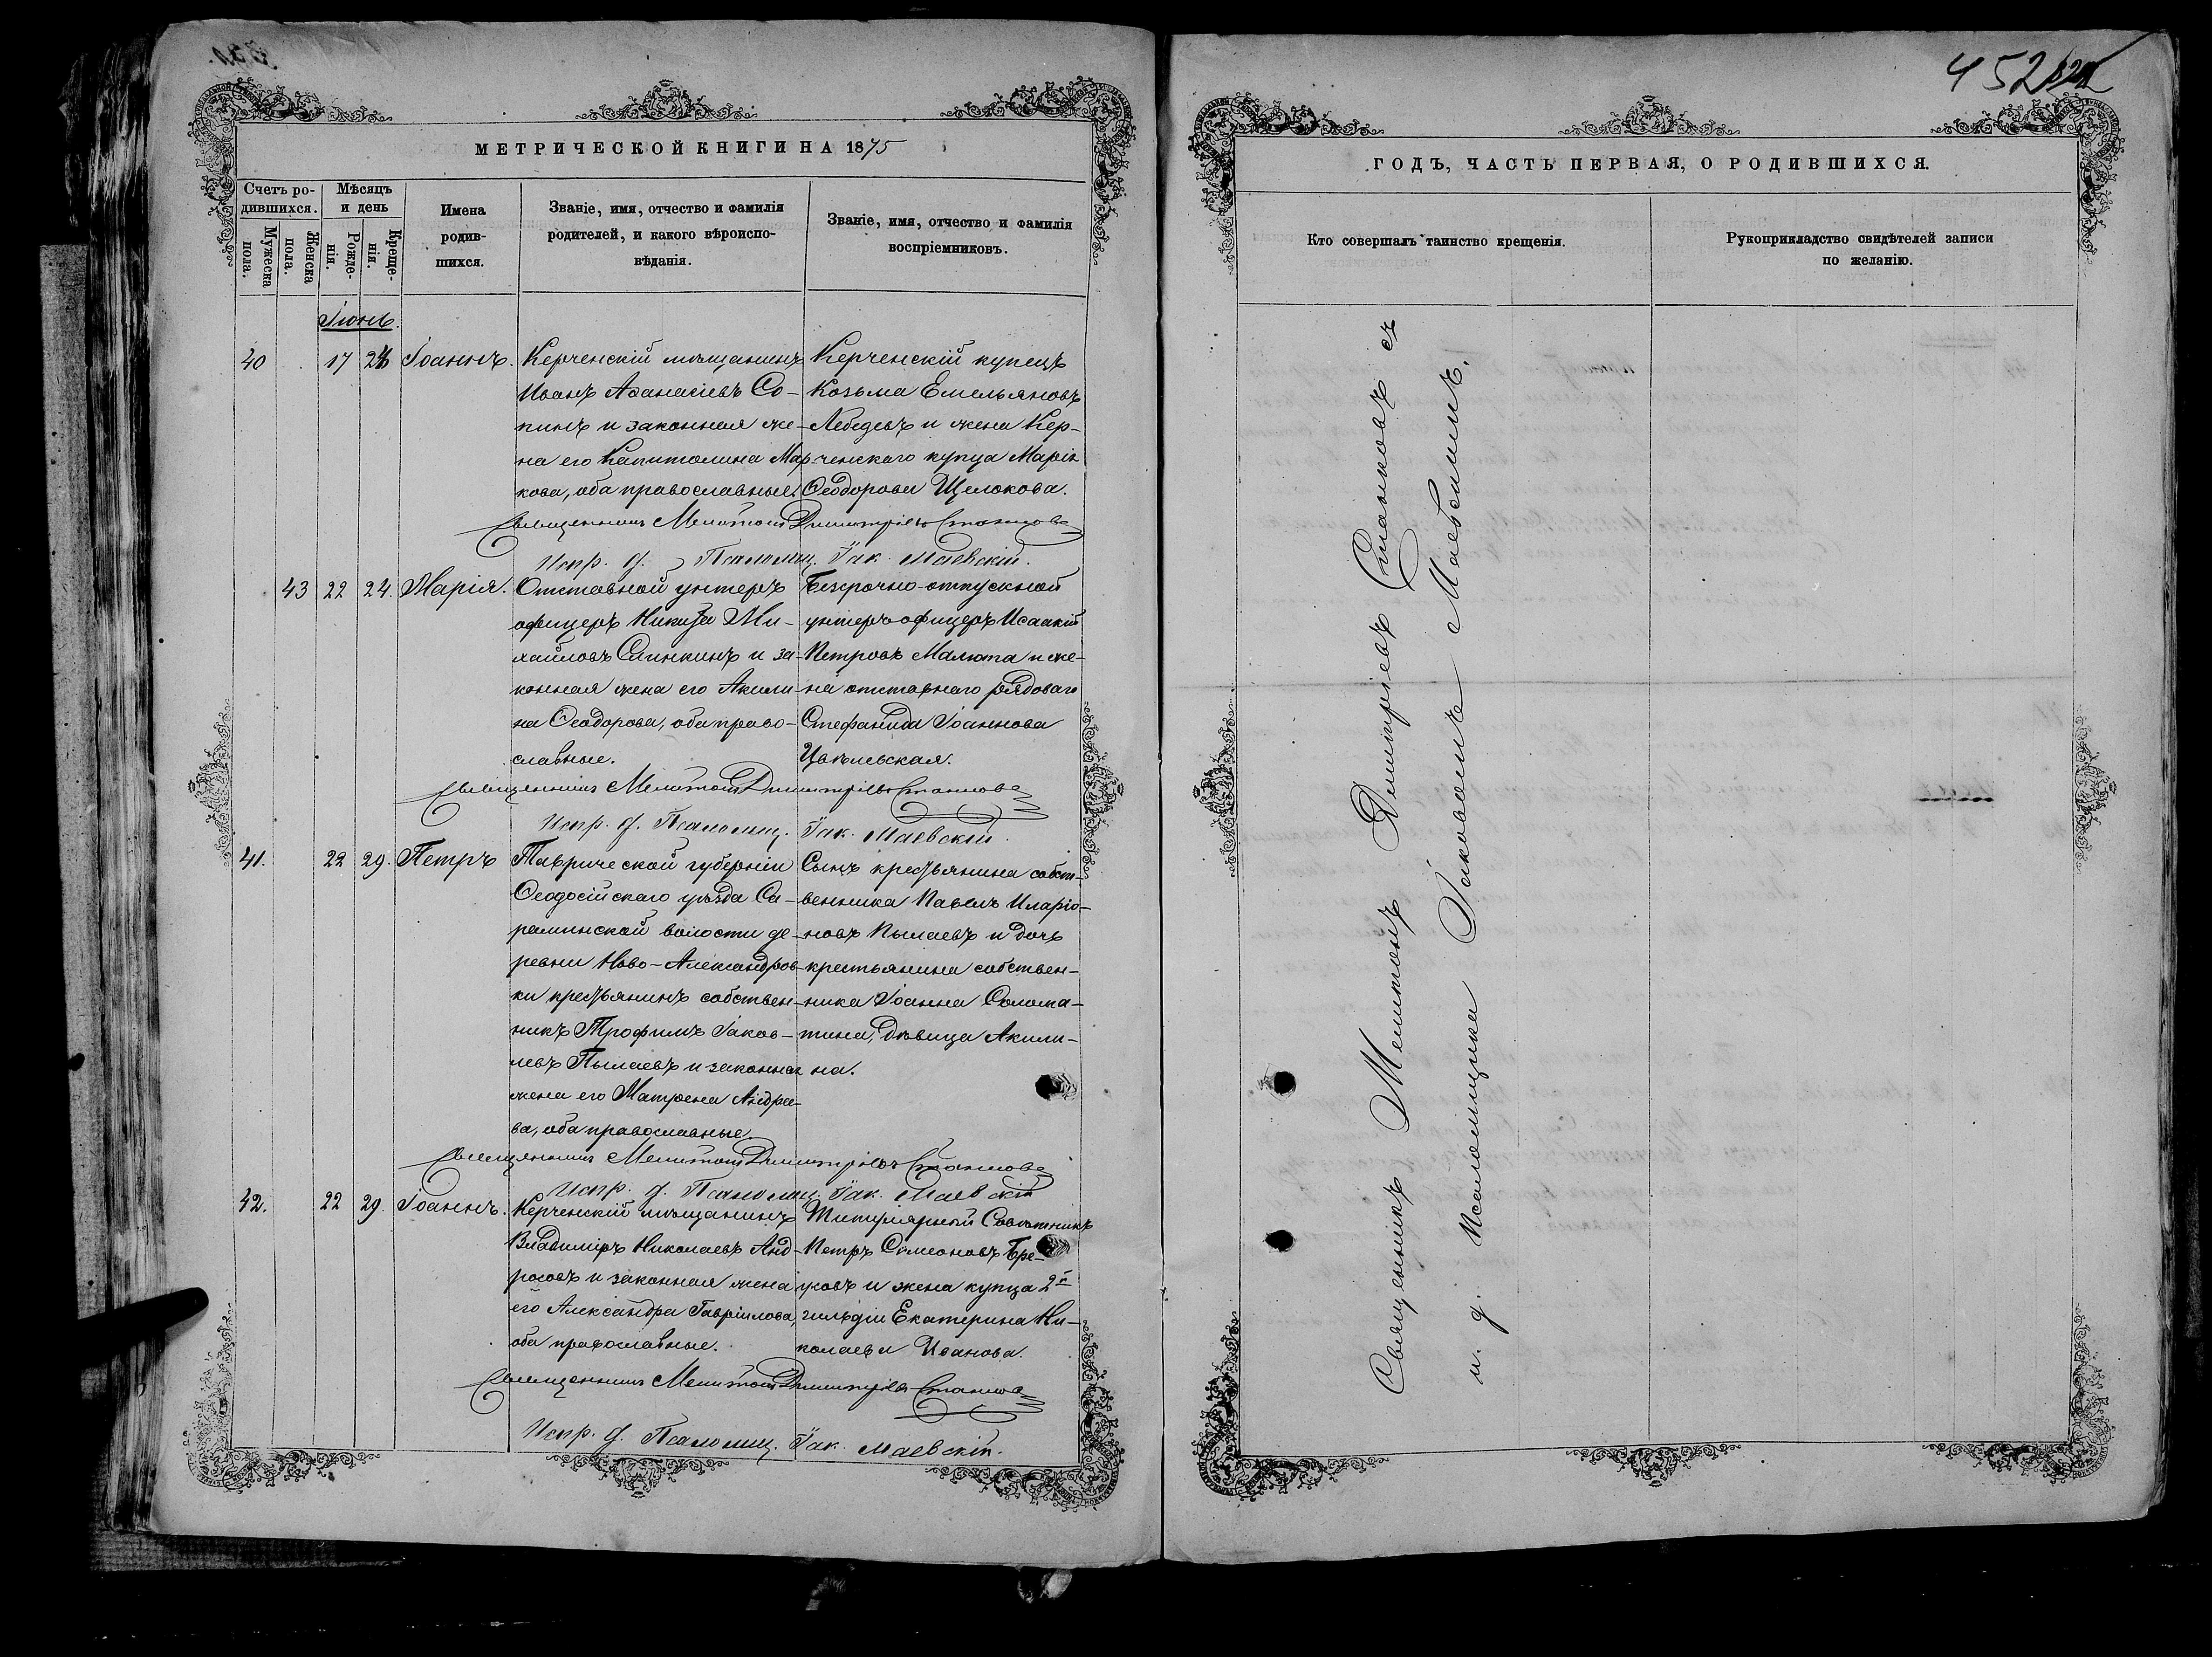 МЕТРИЧЕСКОЙ КНИГИ НА 1875
Счетъ ро-
дившихся.
Мужеска
пола.
Женска
пола.
Мѣсяцъ
и день
Рожде-
нія.
Креще-
нія.
Имена
родив-
шихся.
Званіе, имя, отчество и фамилія
родителей, и какого вѣроиспо-
вѣданія.
Званіе, имя, отчество и фамилія
воспріемниковъ.
Іюнь.
40 17 Іоаннъ.
Керченскій мѣщанинъ
Иванъ Аѳанасіевъ Со-
пинъ и законная же-
на его Капитолина Мар-
кова, оба православные.
Керченскій купецъ
Козьма Емельяновъ
Лебедевъ и жена Кер-
ченскаго купца Марія
Ѳеодорова Щелокова.
Священникъ Мелитонъ Димитріевъ Станковъ
Испр. д. Псаломщ. Іак. Маевскій.
43 22 24. Марія.
Отставной унтеръ
офицеръ Никита Ми-
хайловъ Слинкинъ и за-
конная жена его Акили-
на Ѳеодорова, оба право-
славные.
Безсрочно-отпускной
унтеръ-офицеръ Исаакій
Петровъ Малюта и же-
на отставнаго рядоваго
Стефанида Іоаннова
Священникъ Мелитонъ Димитріевъ Станковъ
Испр. д. Псаломщ. Іак. Маевскій.
41. 22 29. Петръ
Таврической губерніи
Ѳеодосійскаго уѣзда Са-
раминской волости де-
ревни Ново-Александров-
ки крестьянинъ собствен-
никъ Трофимъ Іаков-
левъ Пылаевъ и законная
жена его Матрена Андрее-
ва, оба православные.
Сынъ крестьянина собст-
венника Павелъ Иларіо-
новъ Пылаевъ и дочь
крестьянина собствен-
ника Іоанна Солома-
тина, дѣвица Акили-
на.
Священникъ Мелитонъ Димитріевъ Станковъ
Испр. д. Псаломщ. Іак. Маевскій
42. 22 29. Іоаннъ.
Керченскій мѣщанинъ
Владиміръ Николаевъ Анд-
росовъ и законная жена
его Александра Гавріилова,
оба православные.
Титулярный Совѣтникъ
Петръ Симеоновъ
и жена купца 2й
гильдіи Екатерина Ни-
колаева Иванова.
Священникъ Мелитонъ Димитріевъ Станковъ
Испр. д. Псаломщ. Іак. Маевскій.
452
ГОДЪ, ЧАСТЬ ПЕРВАЯ, О РОДИВШИХСЯ.
Кто совершалъ таинство крещенія.
Рукоприкладство свидѣтелей записи
по желанію.
Священникъ Мелитонъ Димитріевъ Станковъ съ
и. д. Псаломщика Іаковомъ Маевскимъ.